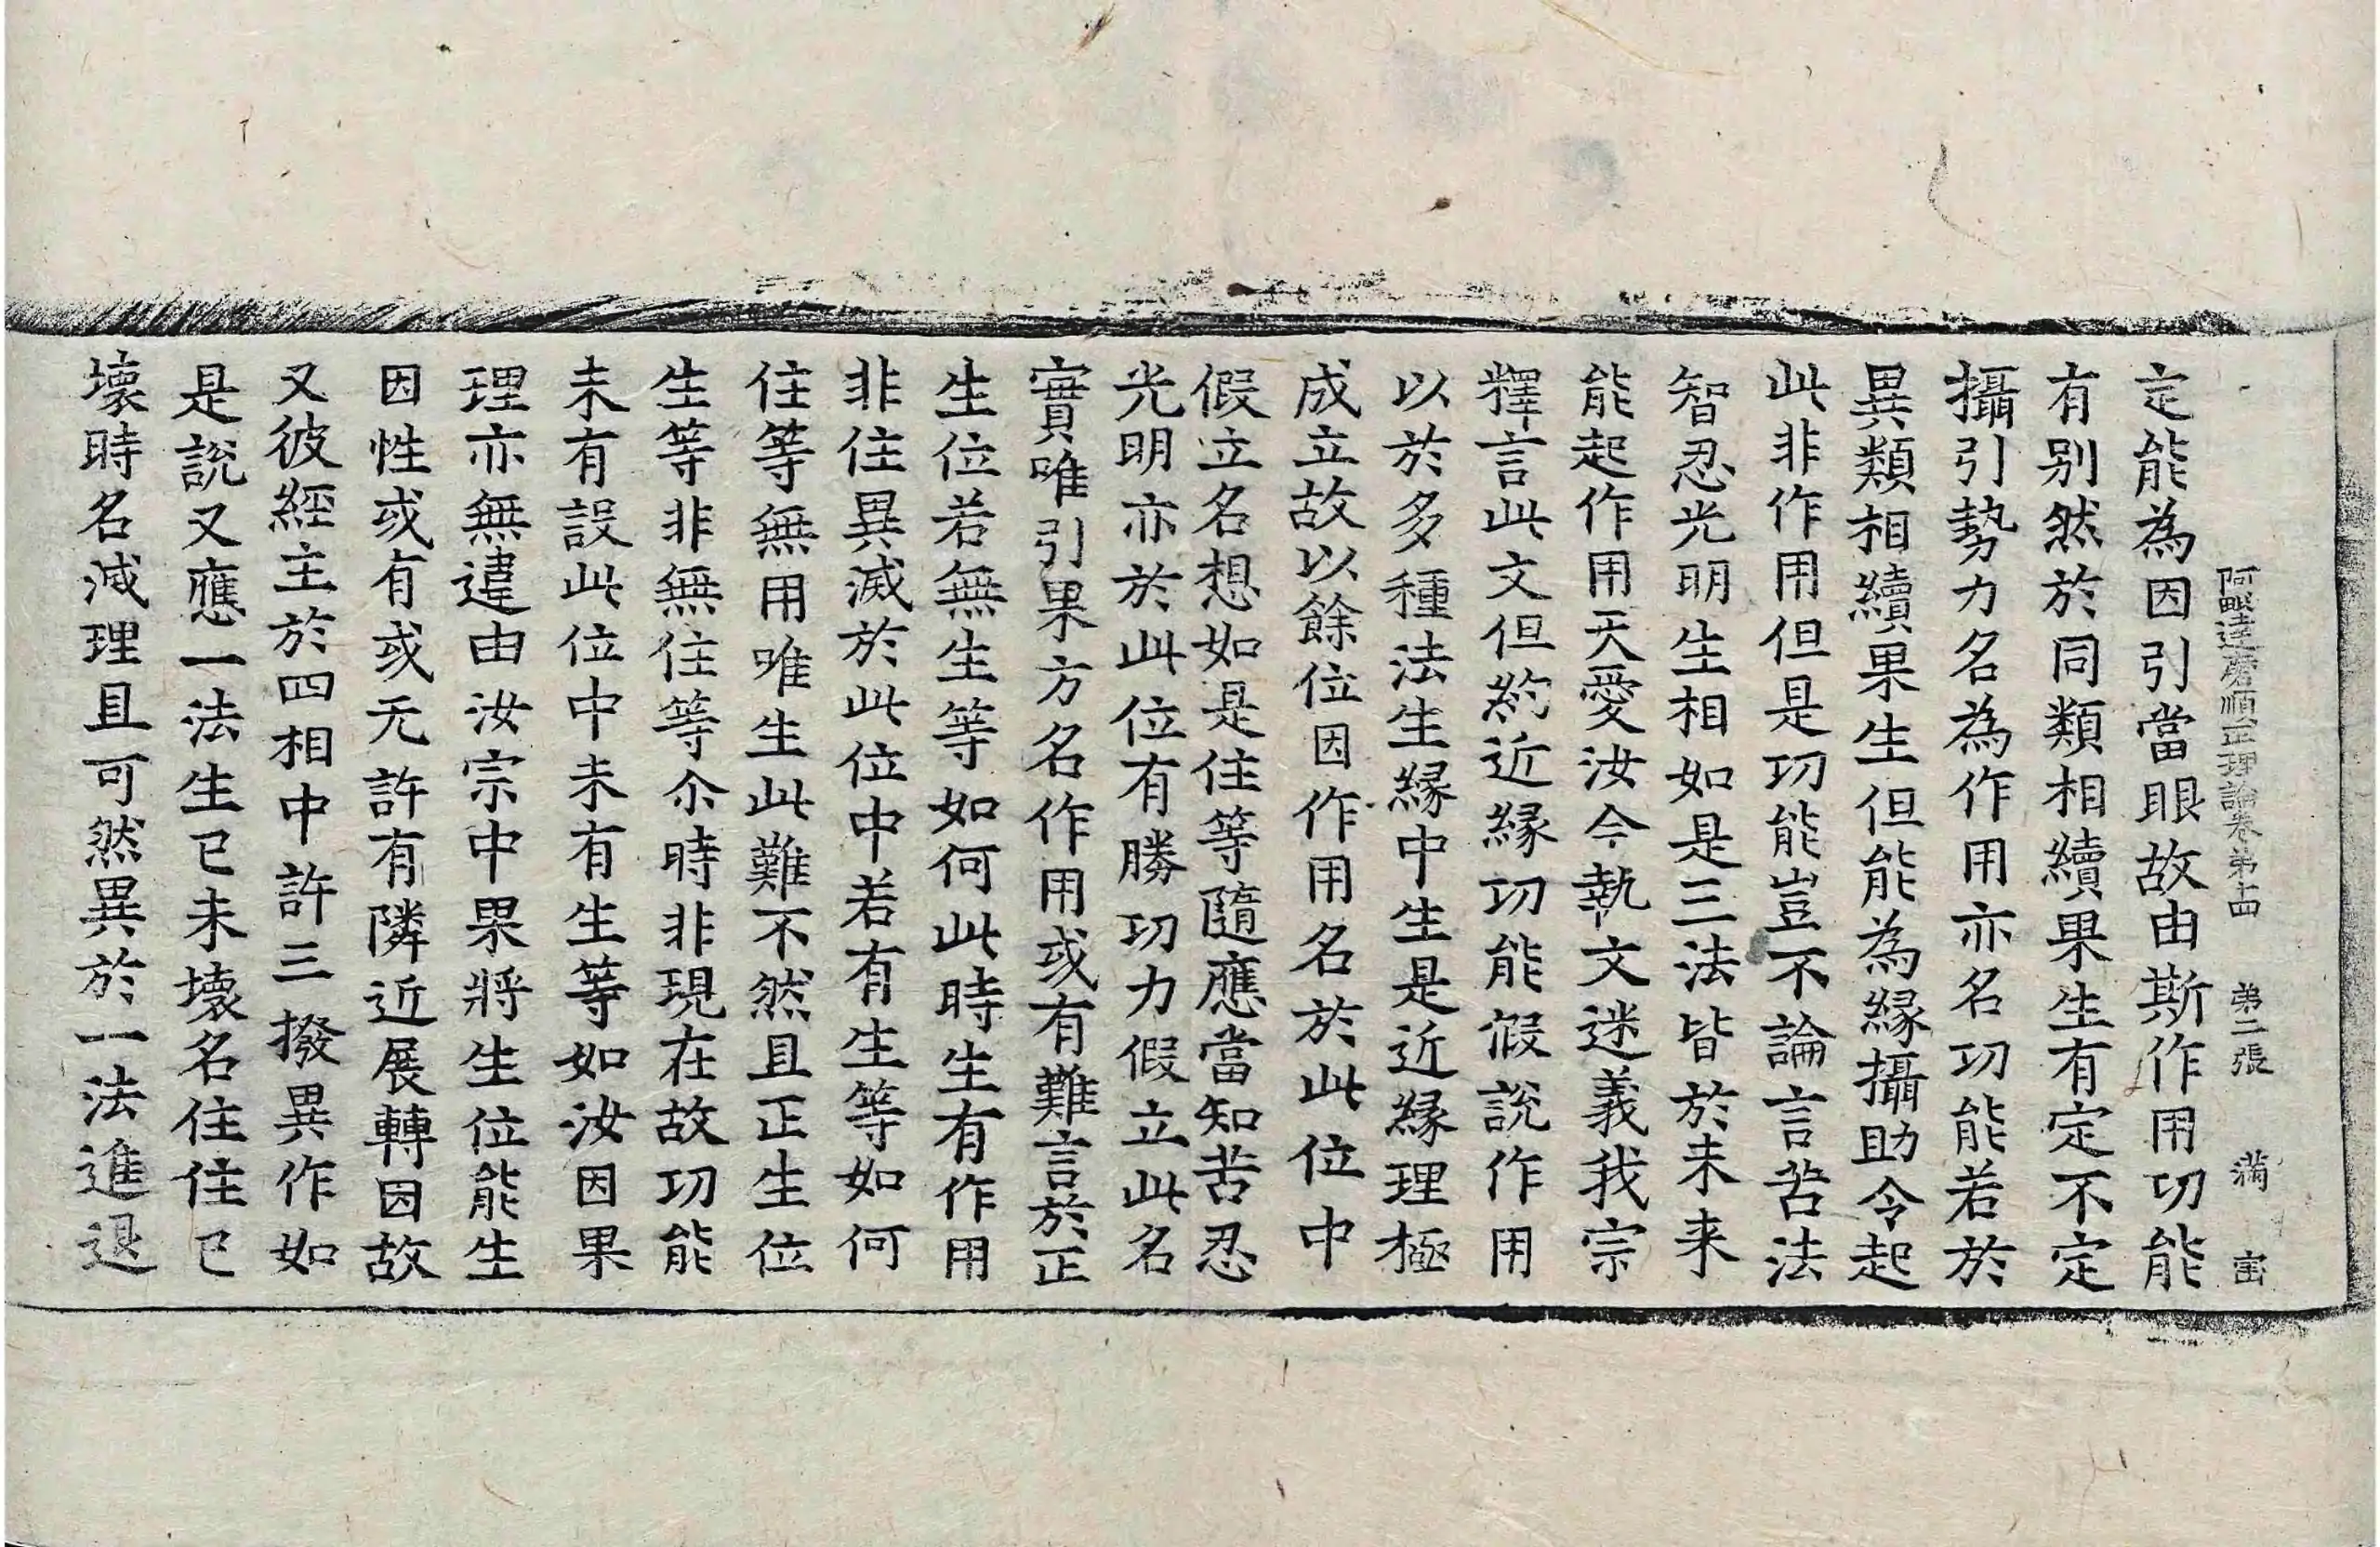 阿毗達磨順正理論卷第十四 第二張 滿 宙
定能為因引當眼故由斯作用功能
有别然於同類相續果生有定不定
攝引勢力名為作用亦名功能若於
異類相續果生但能為緣攝助令起
此非作用但是功能豈不論言苦法
智忍光明生相如是三法皆於未来
能起作用天愛汝今執文迷義我宗
釋言此文但約近緣功能假說作用
以於多種法生緣中生是近緣理極
成立故以餘位因作用名於此位中
假立名想如是住等隨應當知苦忍
光明亦於此位有勝功力假立此名
實唯引果方名作用或有難言於正
生位若無生等如何此時生有作用
非住異滅於此位中若有生等如何
住等無用唯生此難不然且正生位
生等非無住等尒時非現在故功能
未有設此位中未有生等如汝因果
理亦無違由汝宗中果將生位能生
因性或有或无許有隣近展轉因故
又彼經主於四相中許三撥異作如
是說又應一法生已未壞名住住已
壞時名滅理且可然異於一法進退